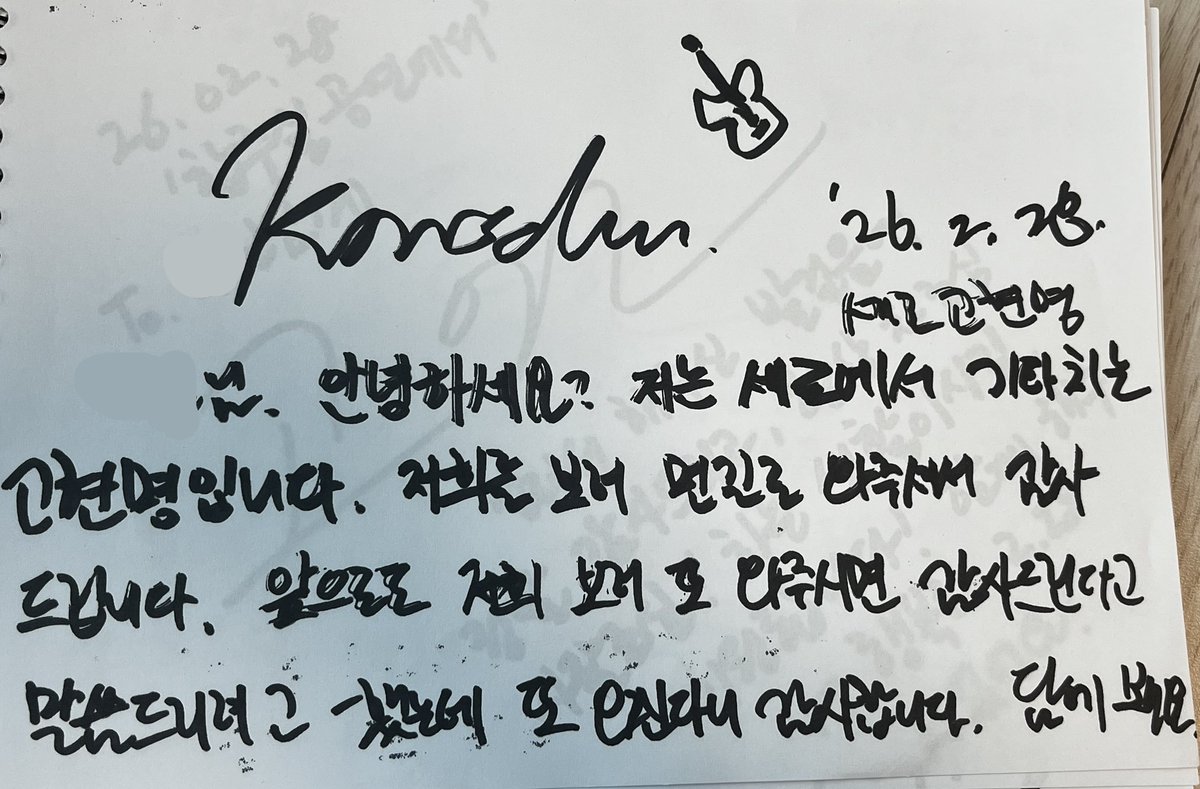 '26. 2. 28.
세로 고현명
님. 안녕하세요? 저는 세로에서 기타치는
고현명입니다. 저희는 보러 먼길로 와주셔서 감사
드립니다. 앞으로도 저희 보러 또 와주시면 감사드린다고
말씀드리려고 했는데 또 오신다니 감사합니다. 담에 봐요.